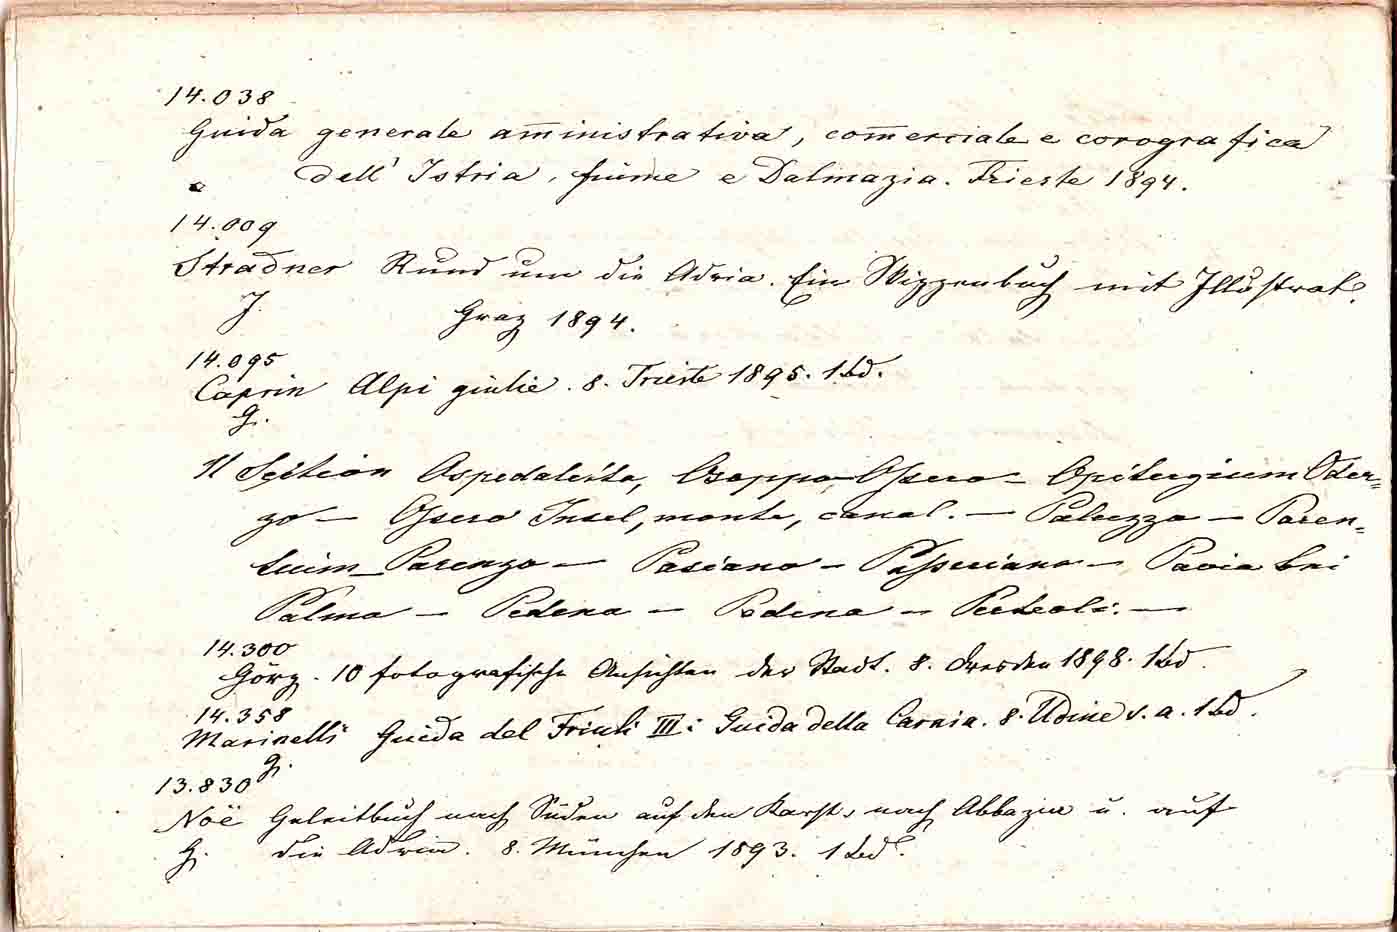 14.038
Guida generale am̅inistrativa, com̅erciale e corografica
dell' Istria, fiume e Dalmazia. Trieste 1894.
14.009
Stradner Rund um die Adria. Ein Skizzenbuch mit Illustrat.
J. Graz 1894.
14.095
Caprin Alpi giulie. 8. Trieste 1895. 1 Bd.
G.
Ospedaletto, Osoppo, Ossero – Opitergium Oder=
zo – Ossero Insel, monte, canal. – Paluzza – Paren=
tium – Parenzo – Pasiano – Passeriano – Pavia bei
Palma – Pedena – Pedena –
14.300
Görz. 10 fotografische Ansichten der Stadt. 8. Dresden 1898. 1 Bd.
14.358
Marinelli Guida del Friuli III: Guida della Carnia. 8. Udine s. a. 1 Bd.
G.
13.830
Noë Geleitbuch nach Süden auf den Karst, nach Abbazia u. auf
H. die Adria. 8. München 1893. 1 Bd.